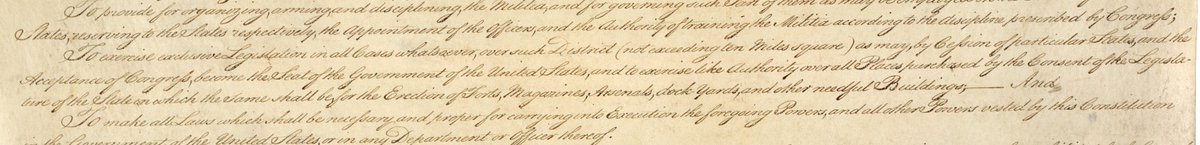 To provide for organizing, arming, and disciplining, the Militia, and for governing such Part of them as may be employed in the
States, reserving to the States respectively, the Appointment of the Officers, and the Authority of training the Militia according to the discipline prescribed by Congress;
To exercise exclusive Legislation in all Cases whatsoever, over such District (not exceeding ten Miles square) as may, by Cession of particular States, and the
Acceptance of Congress, become the Seat of the Government of the United States, and to exercise like Authority over all Places purchased by the Consent of the Legisla-
ture of the State in which the Same shall be, for the Erection of Forts, Magazines, Arsenals, dock-Yards, and other needful Buildings;— And
To make all Laws which shall be necessary and proper for carrying into Execution the foregoing Powers, and all other Powers vested by this Constitution
in the Government of the United States, or in any Department or Officer thereof.